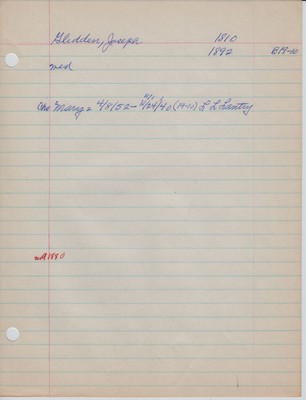 Glidden, Joseph 1810
1892 B19-10
med
Chs Mary 2 4/8/52 - 11/24/40 (19-10) L L Lantry
not 1880